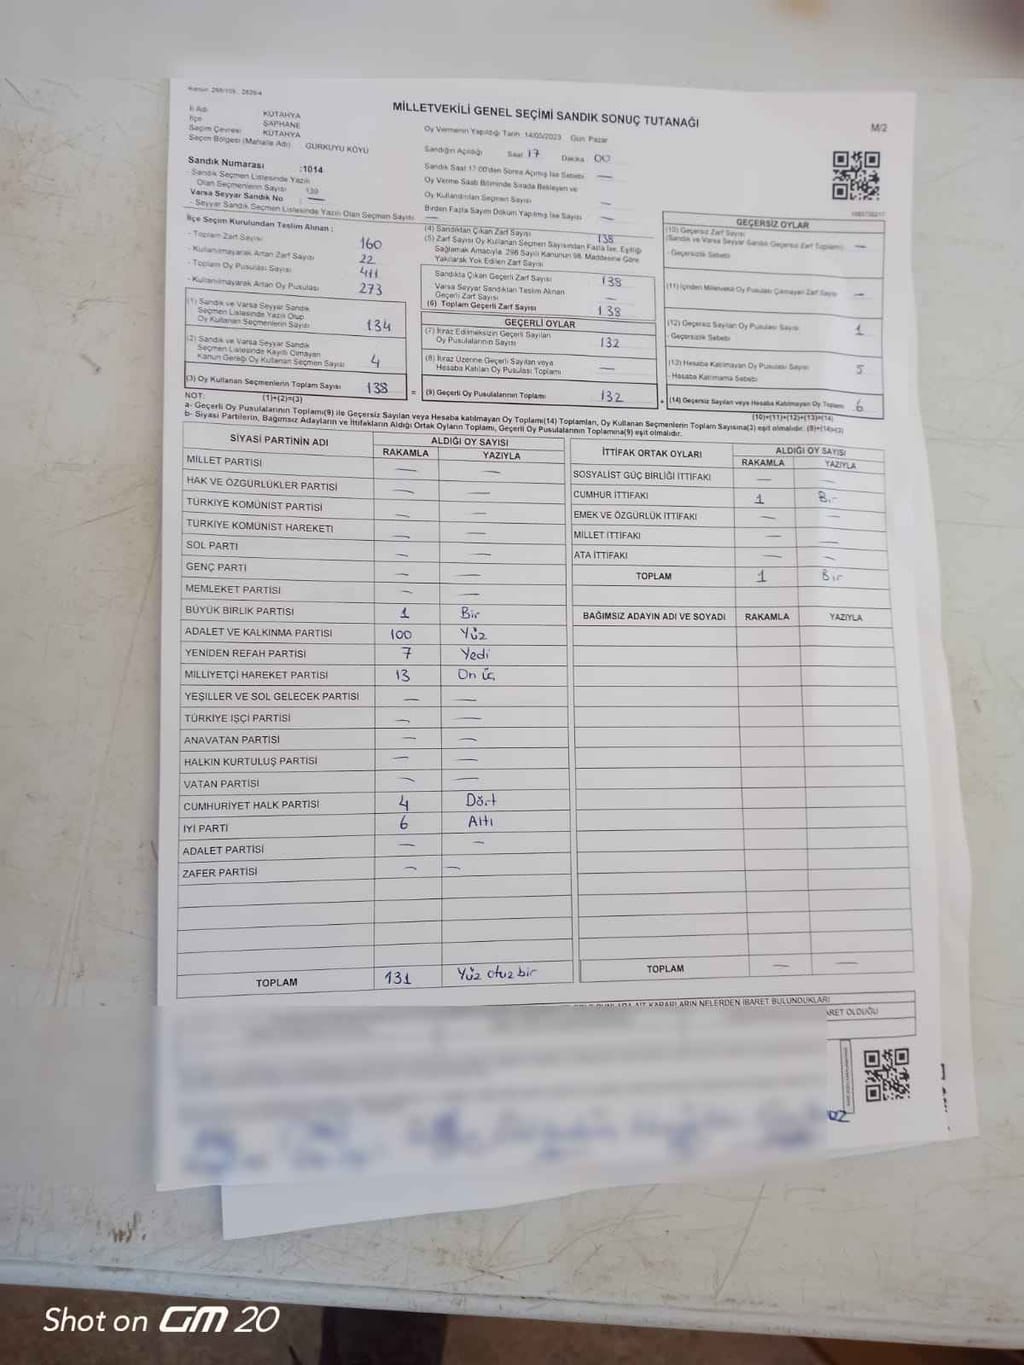 MİLLETVEKİLİ GENEL SEÇİMİ SANDIK SONUÇ TUTANAĞI
M/2
İl Adı KÜTAHYA
İlçe ŞAPHANE
Seçim Çevresi KÜTAHYA
Seçim Bölgesi (Mahalle Adı) GÜRKUYU KÖYÜ
Sandık Numarası :1014
Sandık Seçmen Listesinde Yazılı
Olan Seçmenlerin Sayısı 139
Varsa Seyyar Sandık No : —
- Seyyar Sandık Seçmen Listesinde Yazılı Olan Seçmen Sayısı —
Oy Vermenin Yapıldığı Tarih 14/05/2023 Gün Pazar
Sandığın Açıldığı Saat 17 Dakika 00
Sandık Saat 17:00'den Sonra Açılmış İse Sebebi —
Oy Verme Saati Bitiminde Sırada Bekleyen ve
Oy Kullandırılan Seçmen Sayısı —
Birden Fazla Sayım Döküm Yapılmış İse Sayısı —
İlçe Seçim Kurulundan Teslim Alınan :
- Toplam Zarf Sayısı 160
- Kullanılmayarak Artan Zarf Sayısı 22
- Toplam Oy Pusulası Sayısı 411
- Kullanılmayarak Artan Oy Pusulası 273
(1) Sandık ve Varsa Seyyar Sandık
Seçmen Listesinde Yazılı Olup
Oy Kullanan Seçmenlerin Sayısı 134
(2) Sandık ve Varsa Seyyar Sandık
Seçmen Listesinde Kayıtlı Olmayan
Kanun Gereği Oy Kullanan Seçmen Sayısı 4
(3) Oy Kullanan Seçmenlerin Toplam Sayısı 138
(1)+(2)=(3)
(4) Sandıktan Çıkan Zarf Sayısı 138
(5) Zarf Sayısı Oy Kullanan Seçmen Sayısından Fazla İse, Eşitliği
Sağlamak Amacıyla 298 Sayılı Kanunun 98. Maddesine Göre
Yakılarak Yok Edilen Zarf Sayısı
Sandıkta Çıkan Geçerli Zarf Sayısı 138
Varsa Seyyar Sandıktan Teslim Alınan
Geçerli Zarf Sayısı —
(6) Toplam Geçerli Zarf Sayısı 138
GEÇERLİ OYLAR
(7) İtiraz Edilmeksizin Geçerli Sayılan
Oy Pusulalarının Sayısı 132
(8) İtiraz Üzerine Geçerli Sayılan veya
Hesaba Katılan Oy Pusulası Toplamı —
= (9) Geçerli Oy Pusulalarının Toplamı 132
GEÇERSİZ OYLAR
(10) Geçersiz Zarf Sayısı
(Sandık ve Varsa Seyyar Sandık Geçersiz Zarf Toplamı) —
- Geçersizlik Sebebi
(11) İçinden Milletvekili Oy Pusulası Çıkmayan Zarf Sayısı —
(12) Geçersiz Sayılan Oy Pusulası Sayısı 1
- Geçersizlik Sebebi
(13) Hesaba Katılmayan Oy Pusulası Sayısı 5
- Hesaba Katılmama Sebebi
+ (14) Geçersiz Sayılan veya Hesaba Katılmayan Oy Toplamı 6
(10)+(11)+(12)+(13)=(14)
NOT:
a- Geçerli Oy Pusulalarının Toplamı(9) ile Geçersiz Sayılan veya Hesaba katılmayan Oy Toplamı(14) Toplamları, Oy Kullanan Seçmenlerin Toplam Sayısına(3) eşit olmalıdır. (9)+(14)=(3)
b- Siyasi Partilerin, Bağımsız Adayların ve İttifakların Aldığı Ortak Oyların Toplamı, Geçerli Oy Pusulalarının Toplamına(9) eşit olmalıdır.
SİYASİ PARTİNİN ADI ALDIĞI OY SAYISI
RAKAMLA YAZIYLA
MİLLET PARTİSİ — —
HAK VE ÖZGÜRLÜKLER PARTİSİ — —
TÜRKİYE KOMÜNİST PARTİSİ — —
TÜRKİYE KOMÜNİST HAREKETİ — —
SOL PARTİ — —
GENÇ PARTİ — —
MEMLEKET PARTİSİ — —
BÜYÜK BİRLİK PARTİSİ 1 Bir
ADALET VE KALKINMA PARTİSİ 100 Yüz
YENİDEN REFAH PARTİSİ 7 Yedi
MİLLİYETÇİ HAREKET PARTİSİ 13 On üç
YEŞİLLER VE SOL GELECEK PARTİSİ — —
TÜRKİYE İŞÇİ PARTİSİ — —
ANAVATAN PARTİSİ — —
HALKIN KURTULUŞ PARTİSİ — —
VATAN PARTİSİ — —
CUMHURİYET HALK PARTİSİ 4 Dört
İYİ PARTİ 6 Altı
ADALET PARTİSİ — —
ZAFER PARTİSİ — —
TOPLAM 131 Yüz otuz bir
İTTİFAK ORTAK OYLARI ALDIĞI OY SAYISI
RAKAMLA YAZIYLA
SOSYALİST GÜÇ BİRLİĞİ İTTİFAKI — —
CUMHUR İTTİFAKI 1 Bir
EMEK VE ÖZGÜRLÜK İTTİFAKI — —
MİLLET İTTİFAKI — —
ATA İTTİFAKI — —
TOPLAM 1 Bir
BAĞIMSIZ ADAYIN ADI VE SOYADI RAKAMLA YAZIYLA
TOPLAM — —
KARARLARIN NELERDEN İBARET BULUNDUKLARI
OLDUĞU
Shot on GM 20